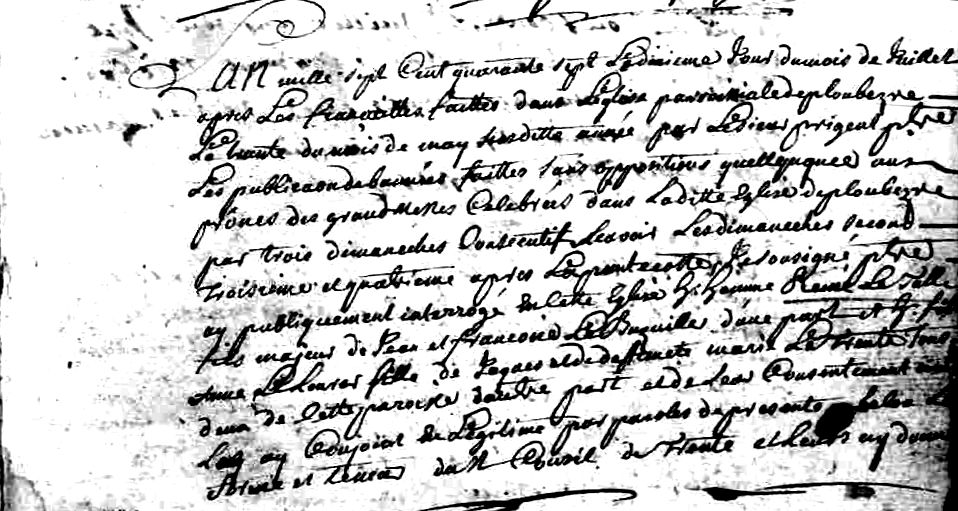 L'AN mille sept Cent quarante sept Le dixieme Jour du mois de Juillet
apres Les fiancailles faittes dans L'eglise parroissiale de ploubezre
Le trente du mois de may susditte année par Le Sieur prigent ptre
Les publicaon de bannies faittes sans oppositions quelquonques aux
prônes des grand Messes Celebrées dans Laditte Eglise de ploubezre
par trois dimanches Consecutif sçavoir Les dimaneches second
troisieme et quatrieme apres La pantecoste, Je soussigné ptre
ay publiquement interrogé En Cette Eglise h. homme René Le Talle
fils majeur de Jean et francoise d'une part et h. f
Anne fille de Jacques et de deffuncte marie Le trente tous
deux de Cette paroisse d'autre part et de Leur Consentement
Les ay Conjoint En Legitime par paroles de presents selon La
forme et teneur du St Concil de Trente et Leurs ay donné